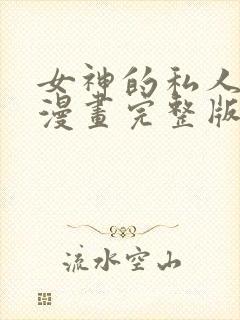 女神的私人
漫畫完整版
流水空山